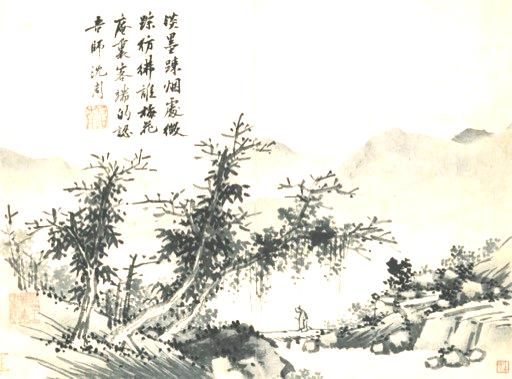 淡墨疎烟處微
踪彷彿誰梅花
庵裏客端的認
吾師沈周